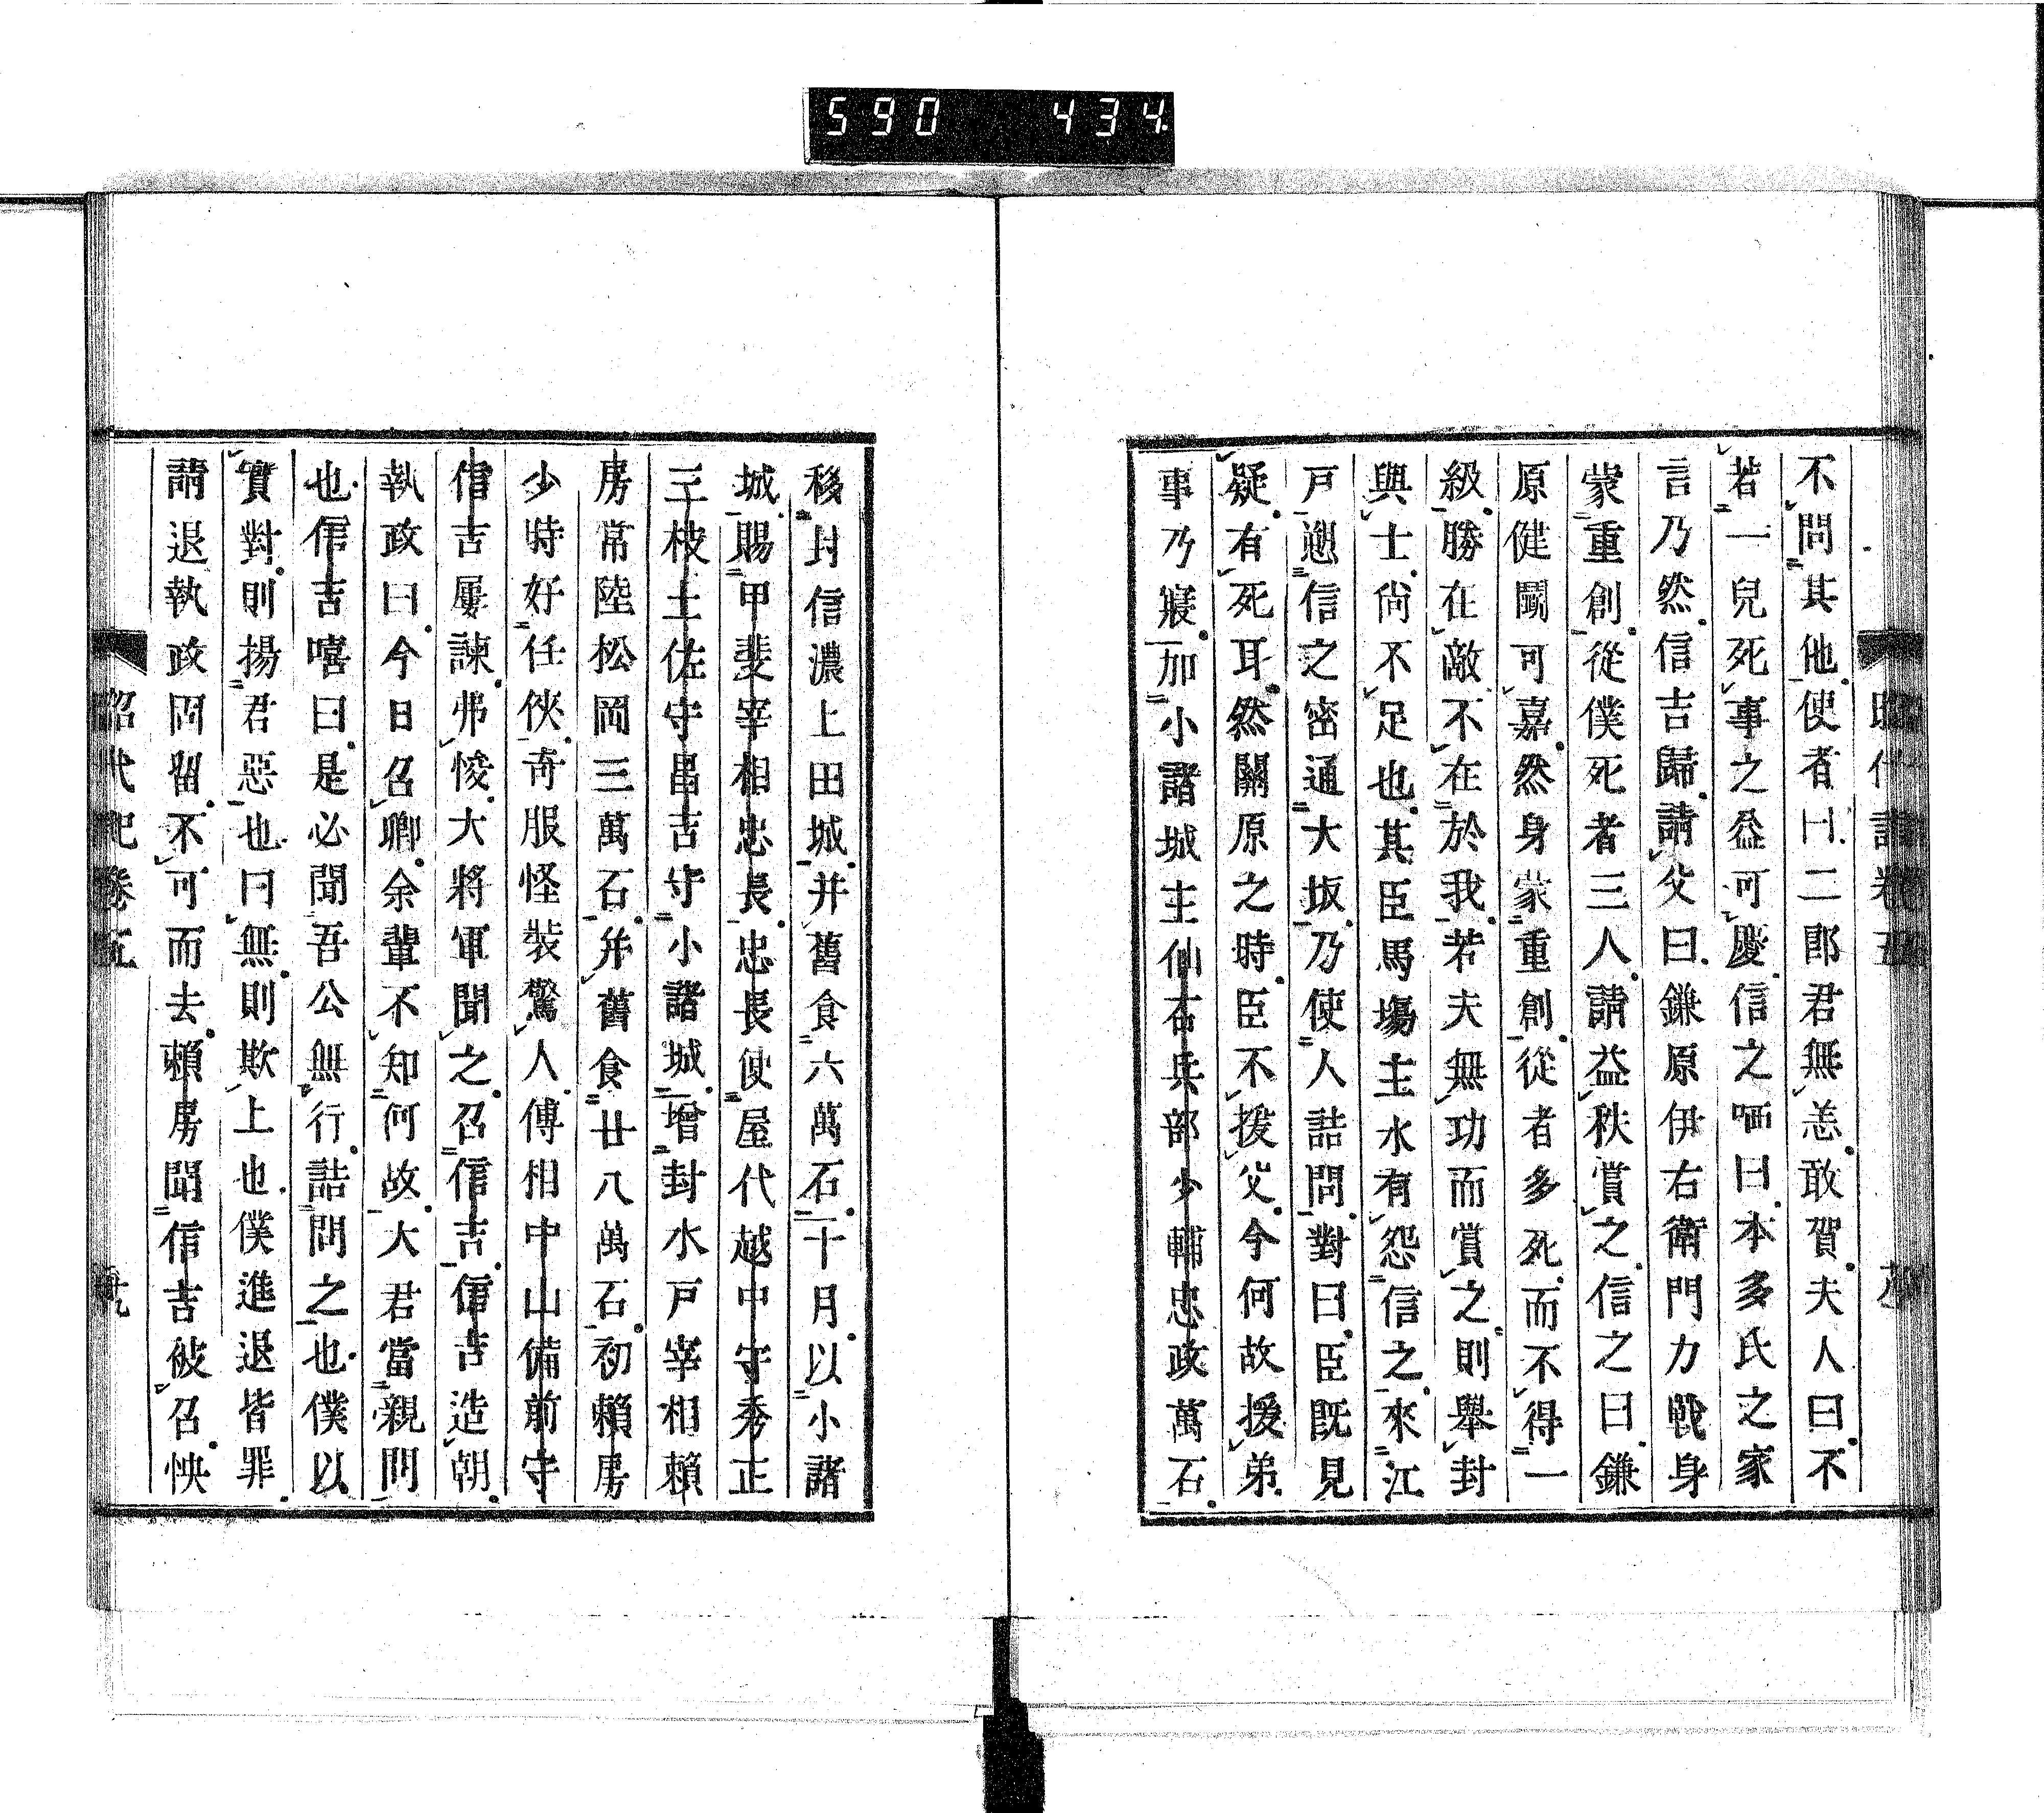 590 434
不問其他使者曰二郎君無恙敢賀夫人曰不
若一兒死事之益可慶信之哂曰本多氏之家
言乃然信吉歸請父曰鎌原伊右衛門力戰身
蒙重創從僕死者三人請益秩賞之信之曰鎌
原健鬭可嘉然身蒙重創從者多死而不得一
級勝在敵不在於我若夫無功而賞之則舉封
與士尙不足也其臣馬塲主水有怨信之來江
戸愬信之密通大坂乃使人詰問對曰臣旣見
疑有死耳然關原之時臣不援父今何故援弟
事乃寢加小諸城主仙石兵部少輔忠政萬石
移封信濃上田城并舊食六萬石十月以小諸
城賜甲斐宰相忠長忠長使屋代越中守秀正
三枝土佐守昌吉守小諸城增封水戸宰相賴
房常陸松岡三萬石并舊食廿八萬石初賴房
少時好任俠奇服怪裝驚人傅相中山備前守
信吉屢諫弗悛大將軍聞之召信吉信吉造朝
執政曰今日召卿余輩不知何故大君當親問
也信吉嘻曰是必聞吾公無行詰問之也僕以
實對則揚君惡也曰無則欺上也僕進退皆罪
請退執政固留不可而去賴房聞信吉被召怏
昭代記卷五